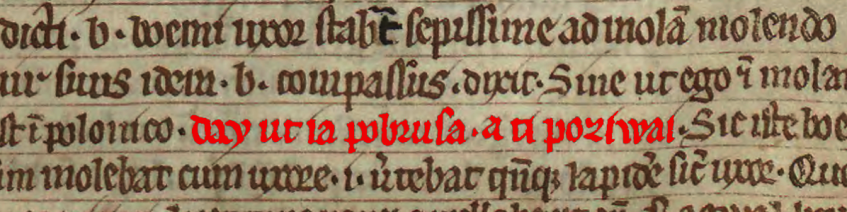 dicti · b · boemi uxor stabat sepissime ad molā molendo
uir suus idem · b · compassus · dixit · Sine ut ego ī mola
st ī polonico · day ut ia pobrusa · a ti poziwai · Sic iste boe
m molebat cum uxore · i · utebat qn̄q lapidē sic̄ uxor · Quo